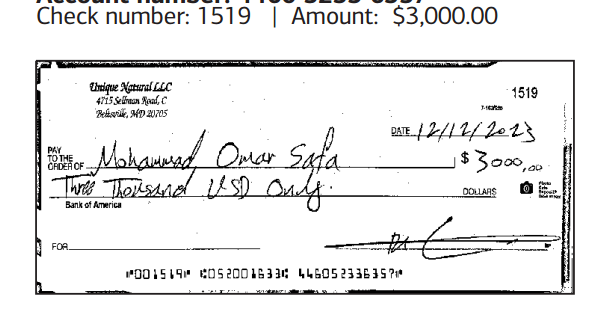 Check number: 1519 | Amount: $3,000.00
Unique Natural LLC
4715 Sellman Road, C
Beltsville, MD 20705
1519
DATE 12/12/2023
PAY TO THE ORDER OF Mohammad Omar Safa $ 3000,00
Three Thousand USD Only. DOLLARS
Bank of America
FOR
⑈001519⑈ ⑆052001633⑆ 446052336357⑈